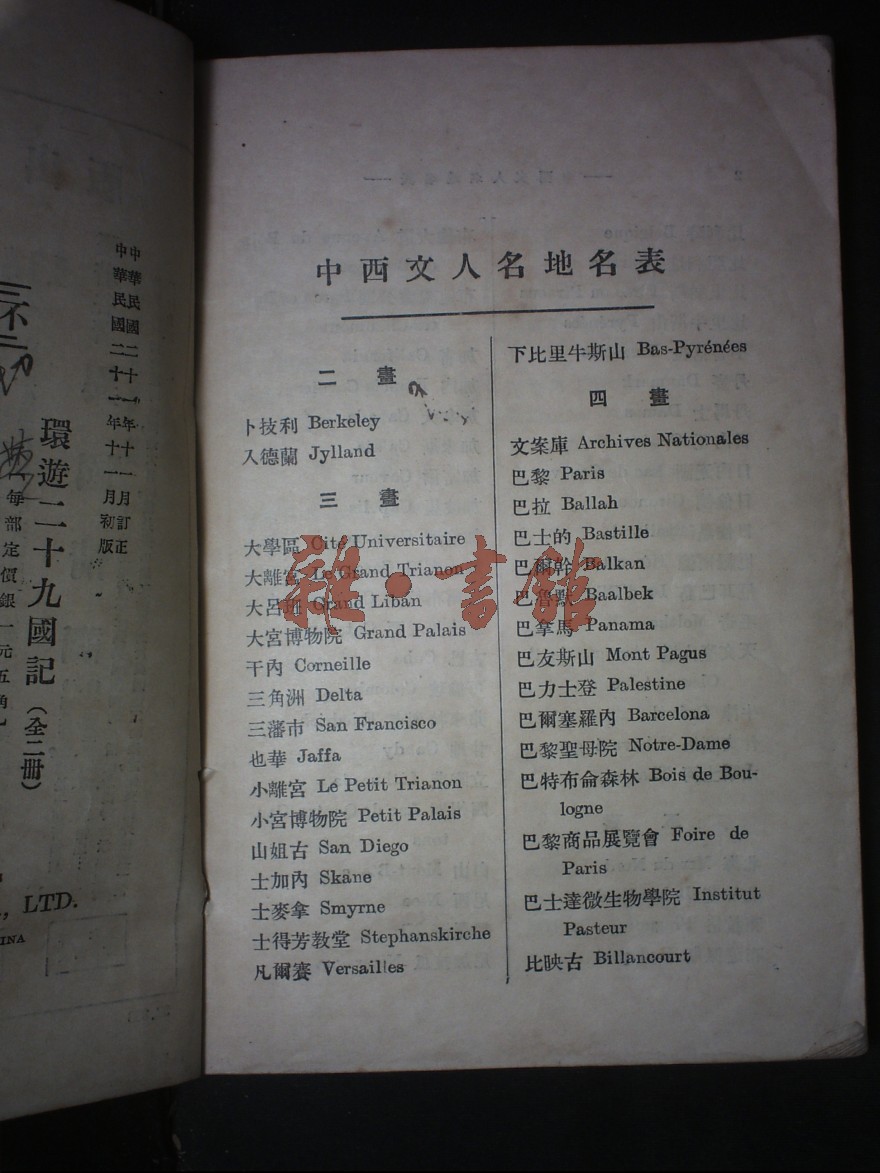 中西文人名地名表
二 畫
卜技利 Berkeley
入德蘭 Jylland
三 畫
大學區 Cité Universitaire
大離宮 Le Grand Trianon
大呂班 Grand Liban
大宮博物院 Grand Palais
干內 Corneille
三角洲 Delta
三藩市 San Francisco
也華 Jaffa
小離宮 Le Petit Trianon
小宮博物院 Petit Palais
山姐古 San Diego
士加內 Skane
士麥拿 Smyrne
士得芳教堂 Stephanskirche
凡爾賽 Versailles
下比里牛斯山 Bas-Pyrénées
四 畫
文案庫 Archives Nationales
巴黎 Paris
巴拉 Ballah
巴士的 Bastille
巴爾幹 Balkan
巴魯默 Baalbek
巴拿馬 Panama
巴友斯山 Mont Pagus
巴力士登 Palestine
巴爾塞羅內 Barcelona
巴黎聖母院 Notre-Dame
巴特布侖森林 Bois de Bou-
logne
巴黎商品展覽會 Foire de
Paris
巴士達微生物學院 Institut
Pasteur
比映古 Billancourt
雜·書館
中華民國二十一年十一月訂正
中華民國二十一年十一月初版
環遊二十九國記（全二冊）
每部定價銀一元五角
, LTD.
INA